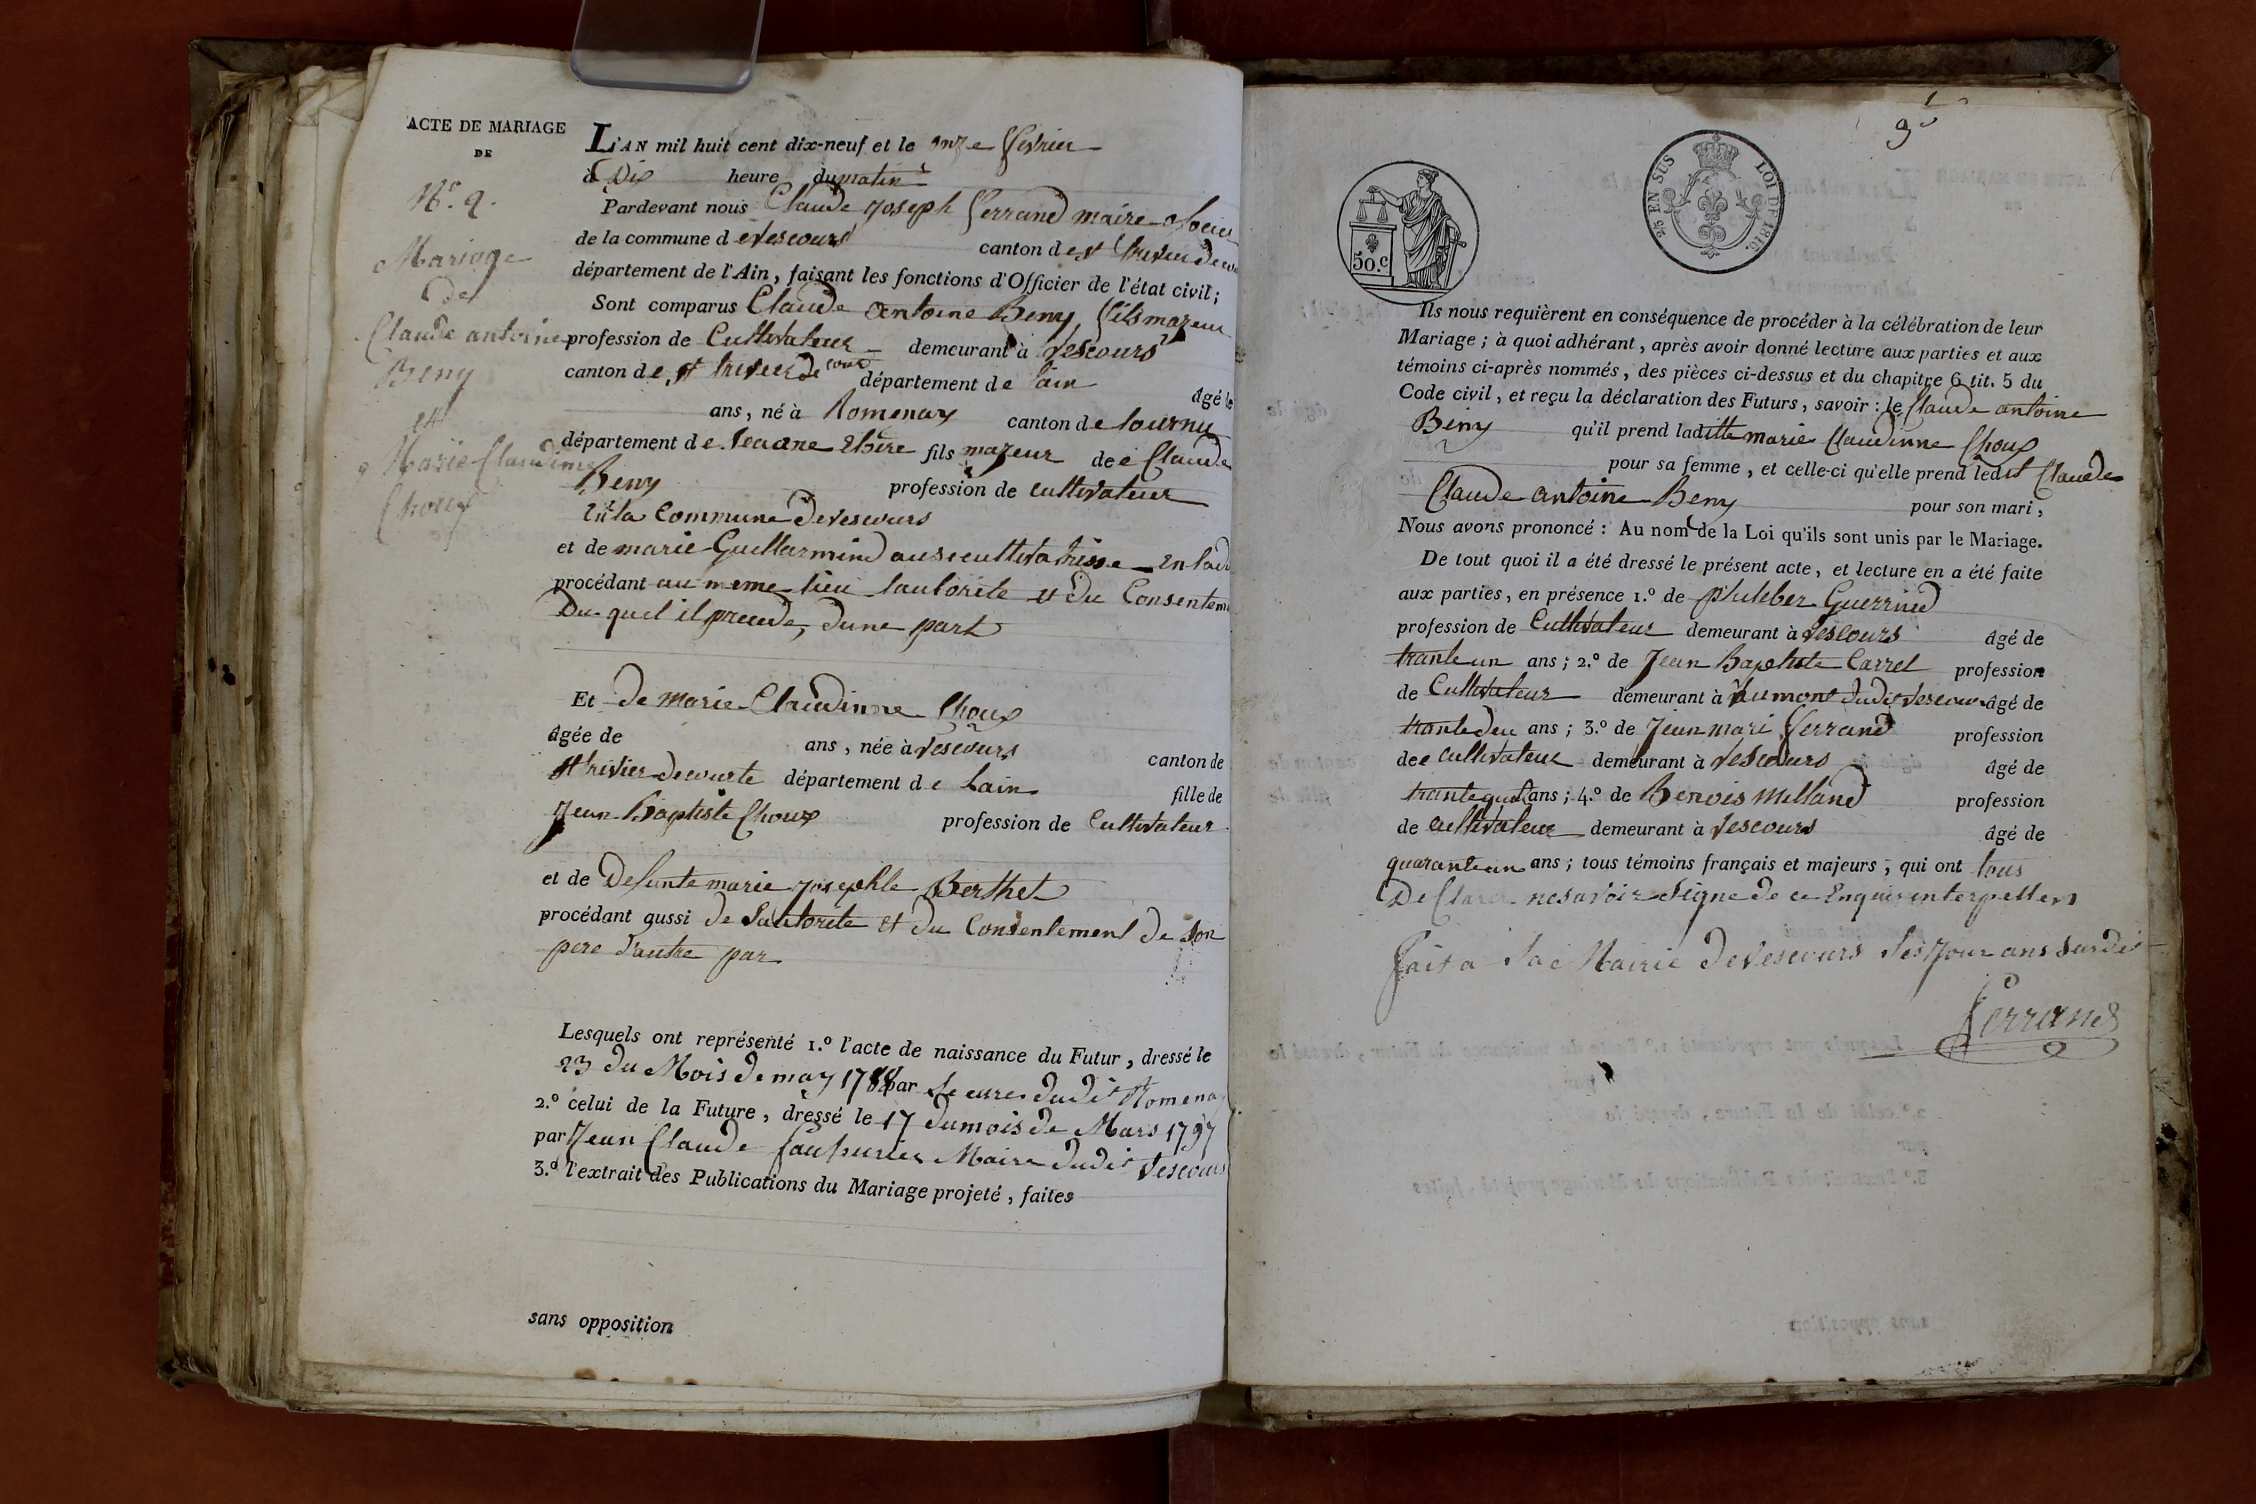 ACTE DE MARIAGE
DE
N.o 2.
Mariage
de
Claude antoine
Beny
et
Marie Claudinne
Choux
L'AN mil huit cent dix-neuf et le onze fevrier
à Dix heure du matin
Pardevant nous Claude Joseph ferrand maire
de la commune de vescours canton de st trivier de
département de l'Ain, faisant les fonctions d'Officier de l'état civil;
Sont comparus Claude antoine Beny fils majeur
profession de Cultivateur demeurant à vescours
canton de st trivier de cour département de lain
âgé
ans, né à Romenay canton de tournu
département de fils majeur de Claude
Beny profession de cultivateur
En la Commune de vescours
et de marie Guillarmind en
procédant au meme lieu lautorite et du
Du quel il procede, dune part
Et de marie Claudinne Choux
âgée de ans, née à vescours canton de
st trivier de courte département de lain fille de
Jean Baptiste Choux profession de cultivateur
et de Defunte marie Josephte Berthet
procédant aussi de Lautorite et du Consentement de son
pere d'autre par
Lesquels ont représenté 1.o l'acte de naissance du Futur, dressé le
23 du Mois de may par Le cure dudit Romenay
2.o celui de la Future, dressé le 17 du mois de Mars 1797
par Jean Claude Maire dudit vescours
3.o l'extrait des Publications du Mariage projeté, faites
sans opposition
9
50.c
25 EN SUS
LOI DE 1816.
Ils nous requièrent en conséquence de procéder à la célébration de leur
Mariage; à quoi adhérant, après avoir donné lecture aux parties et aux
témoins ci-après nommés, des pièces ci-dessus et du chapitre 6 tit. 5 du
Code civil, et reçu la déclaration des Futurs, savoir: le Claude antoine
Beny qu'il prend laditte marie Claudinne Choux
pour sa femme, et celle-ci qu'elle prend ledit Claude
Claude antoine Beny pour son mari,
Nous avons prononcé: Au nom de la Loi qu'ils sont unis par le Mariage.
De tout quoi il a été dressé le présent acte, et lecture en a été faite
aux parties, en présence 1.o de phileber Guerrind
profession de Cultivateur demeurant à vescours âgé de
trante un ans; 2.o de Jean Baptiste Carrel profession
de Cultivateur demeurant à dudit vescours âgé de
trante deu ans; 3.o de Jean mari ferrand profession
de cultivateur demeurant à vescours âgé de
ans; 4.o de Benois Milland profession
de cultivateur demeurant à vescours âgé de
quarante un ans; tous témoins français et majeurs; qui ont tous
De Clarer ne savoir signe de ce Enquis interpelles
fait a La Mairie de vescours Les Jour ans Susdit
ferrand